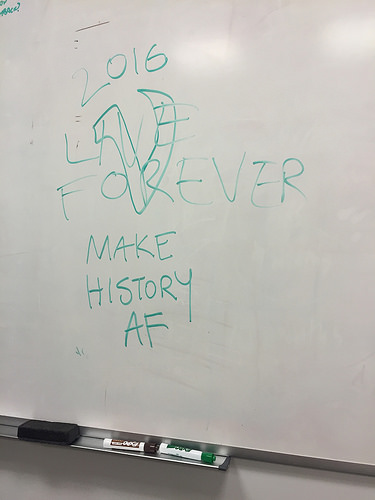 2016
LIVE
FOREVER
MAKE
HISTORY
AF
EXPO
EXPO